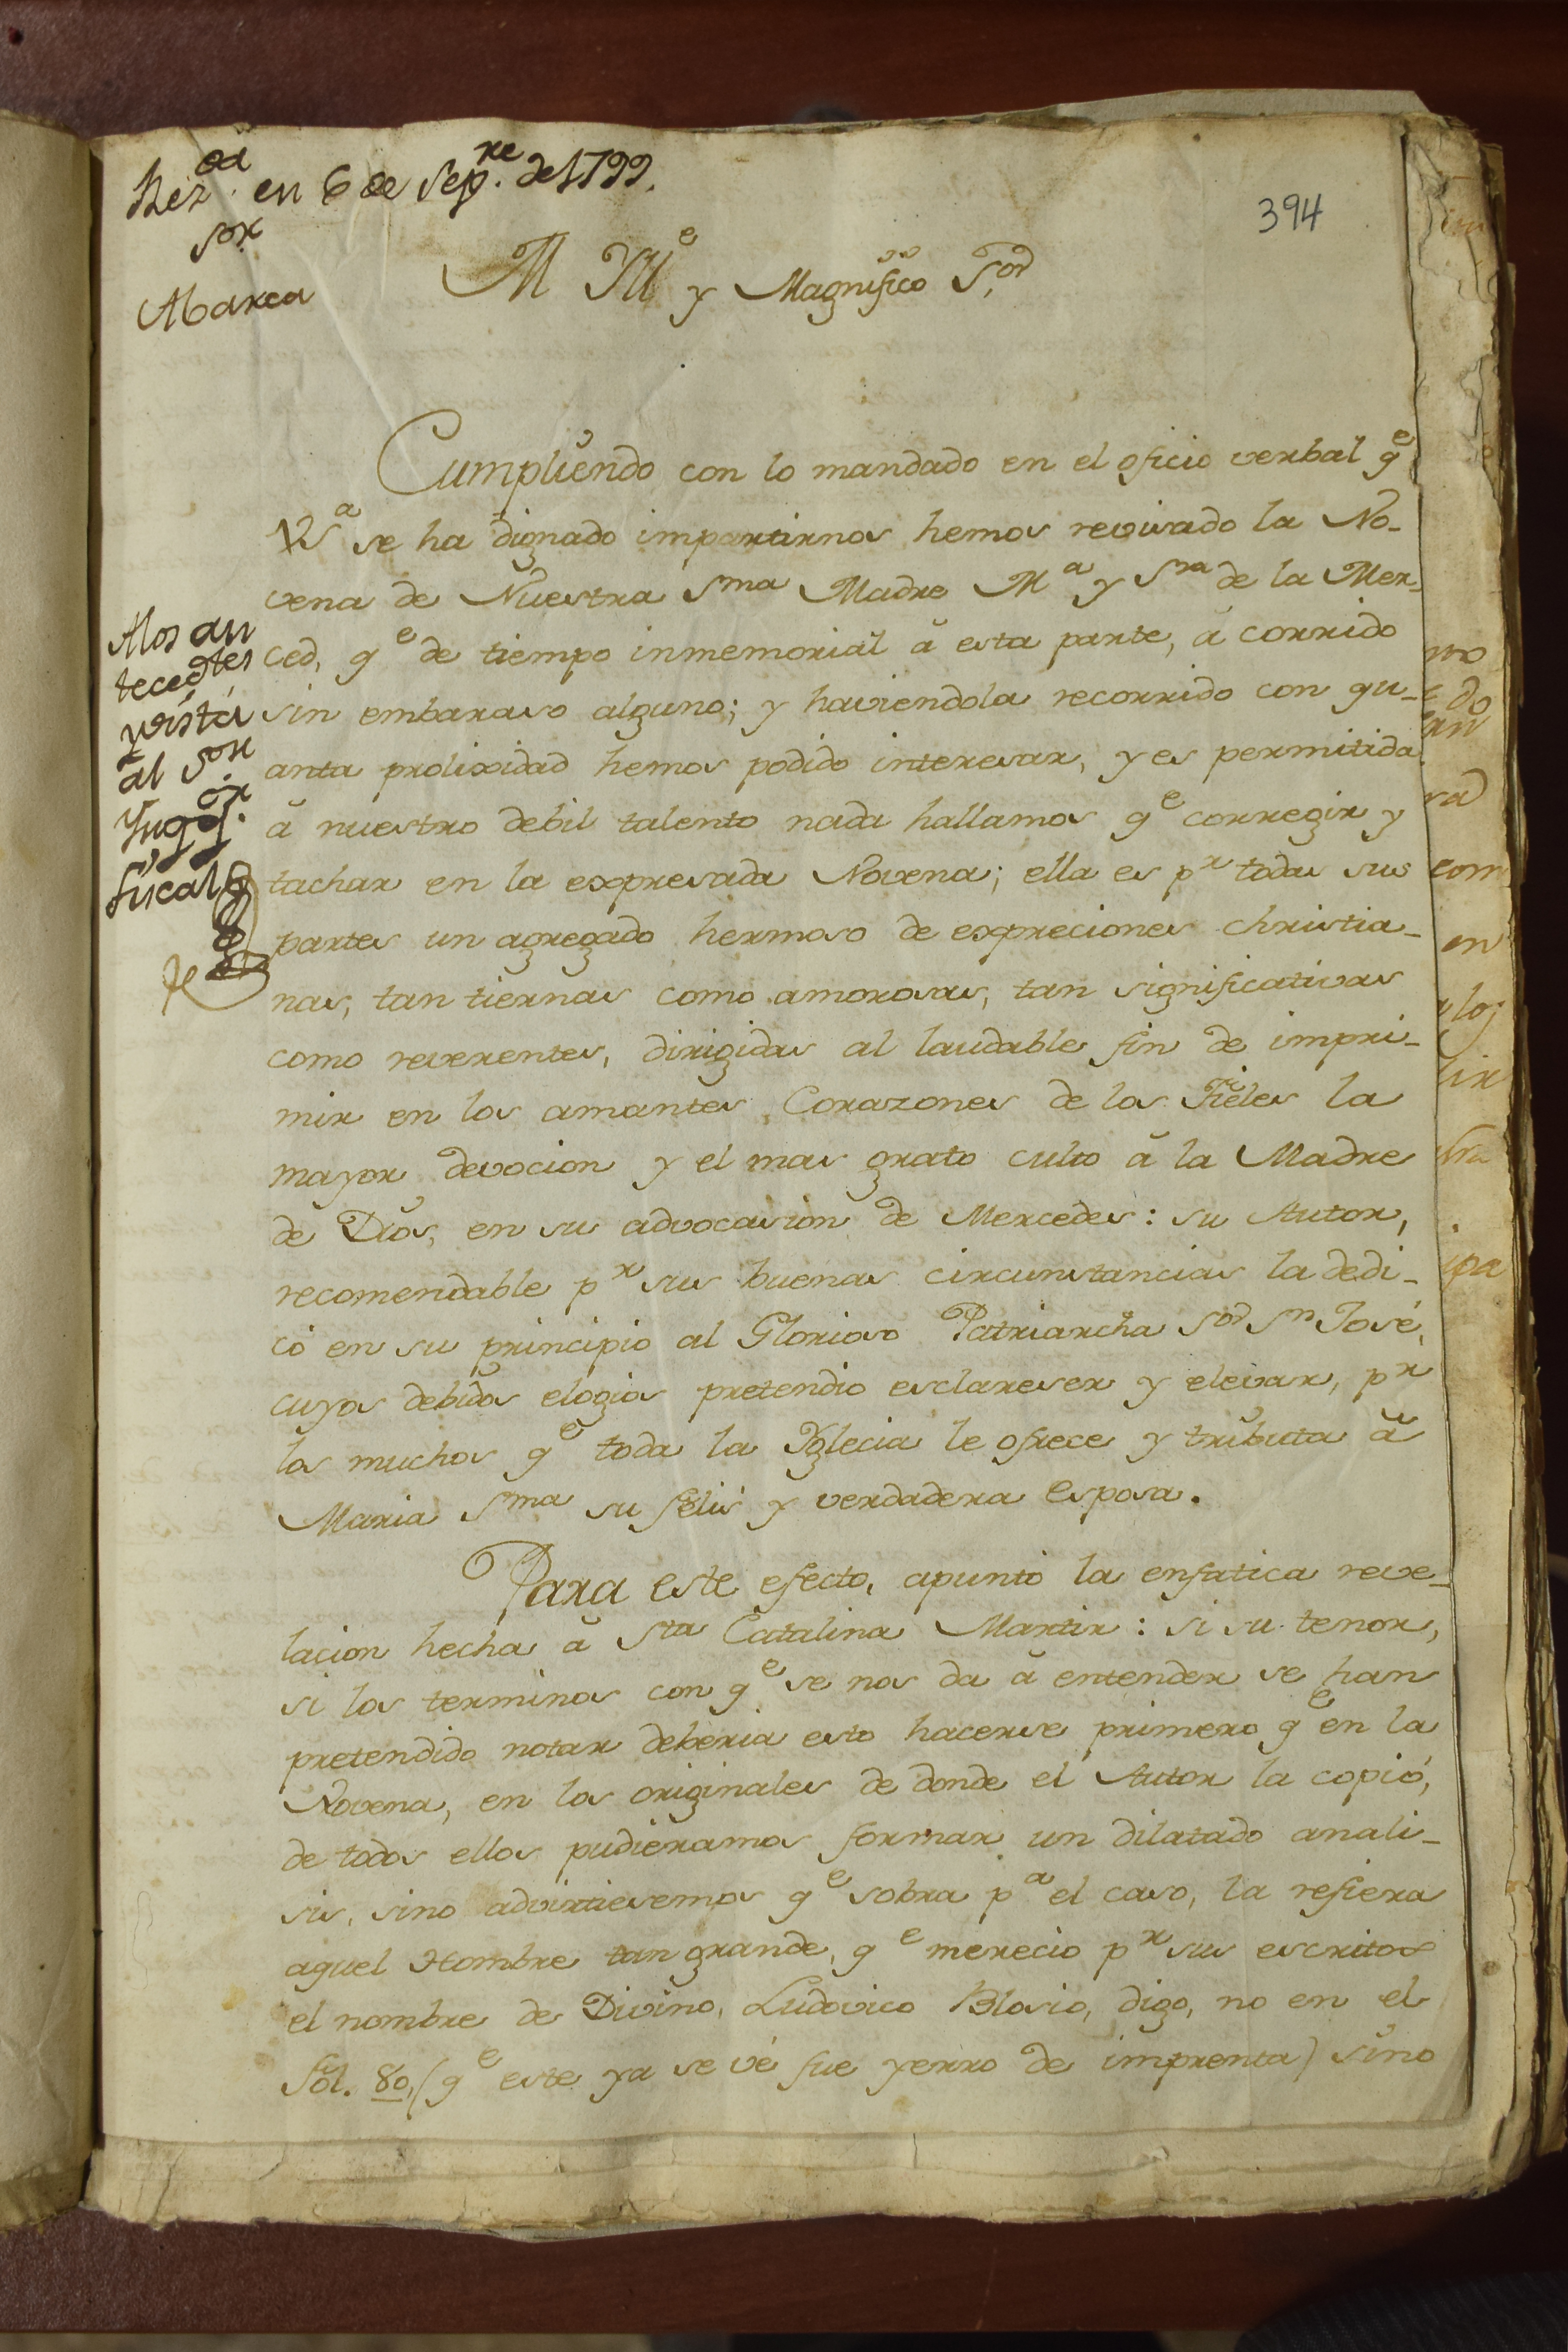 Rez.da en 6 de Sep.re de 1799.
Sor
Abarca
394
M Yll.e y Magnifico S.or
Cumpliendo con lo mandado en el oficio verbal q.e
VS.a se ha dignado impartirnos hemos revisado la No-
vena de Nuestra S.ma Madre M.a y S.ra de la Mer-
ced, q.e de tiempo inmemorial á esta parte, á corrido
sin embaraso alguno; y haviendola recorrido con qu-
anta prolixidad hemos podido interesar, y es permitida
á nuestro debil talento nada hallamos q.e corregir y
tachar en la expresada Novena; ella es p.r todas sus
partes un agregado hermoso de expreciones christia-
nas, tan tiernas como amorosas, tan significativas
como reverentes, dirigidas al laudable fin de impri-
mir en los amantes Corazones de los Fieles la
mayor devocion y el mas grato culto á la Madre
de Dios, en su advocasion de Mercedes: su Autor,
recomendable p.r sus buenas circunstancias la dedi-
có en su principio al Glorioso Patriarcha S.or S.n José,
cuyos debidos elogios pretendio esclareser y elevar, p.r
los muchos q.e toda la Yglecia le ofrece y tributa á
Maria S.ma su felis y verdadera Esposa.
Para este efecto, apuntó la enfatica reve-
lacion hecha á S.ta Catalina Martir: si su tenor,
si los terminos con q.e se nos da á entender se han
pretendido notar deberia esto hacerse primero q.e en la
Novena, en los originales de donde el Autor la copió,
de todos ellos pudieramos formar un dilatado anali-
sis, sino advirtiesemos q.e sobra p.a el caso, la refiera
aquel Hombre tan grande, q.e merecio p.r sus escritos
el nombre de Divino, Ludovico Blosio, digo, no en el
fol. 80, (q.e este ya se vé fue yerro de imprenta) sino
Alos an
teced.tes
y vista
al Sor
Ynq.or
fiscal